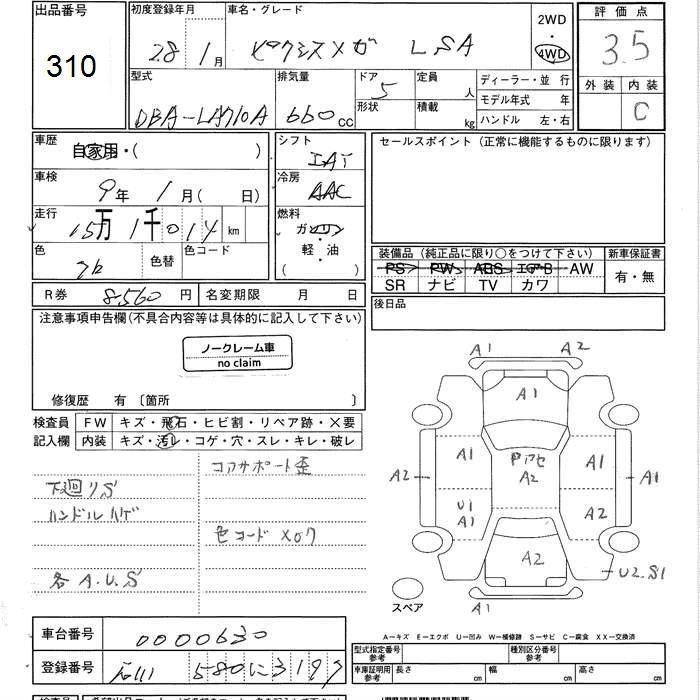 出品番号
310
初度登録年月
28年1月
車名・グレード
ピクシスメガ L SA
2WD
・
4WD
評価点
3.5
外装 内装
C
型式
DBA-LA710A
排気量
660cc
ドア
5
形状
定員
人
積載
kg
ディーラー・並行
モデル年式 年
ハンドル 左・右
車歴
自家用・( )
車検
9年 1月( 日)
走行
15万1千014km
色
色替
色コード
シフト
IAT
冷房
AAC
燃料
ガソリン
軽・油
( )
セールスポイント(正常に機能するものに限ります)
装備品(純正品に限り○をつけて下さい)
PS PW ABS エアB AW
SR ナビ TV カワ
新車保証書
有・無
R券 8,560円
名変期限 月 日
後日品
注意事項申告欄(不具合内容等は具体的に記入して下さい)
ノークレーム車
no claim
修復歴 有 〔箇所 〕
検査員
記入欄
FW キズ・飛石・ヒビ割・リペア跡・×要
内装 キズ・汚レ・コゲ・穴・スレ・キレ・破レ
コアサポート歪
下廻リS
ハンドルハゲ
色コードX07
各A.U.S
A1 A2
A1
A1 A1
A2 A2 A1
U1
A1 A2
A2
U2.S1
A1
スペア
A−キズ E−エクボ U−凹み W−補修跡 S−サビ C−腐食 XX−交換済
車台番号 0000630
登録番号 石川 580 に 3197
型式指定番号
参考
種別区分番号
参考
車庫証明用
参考
長さ cm 幅 cm 高さ cm